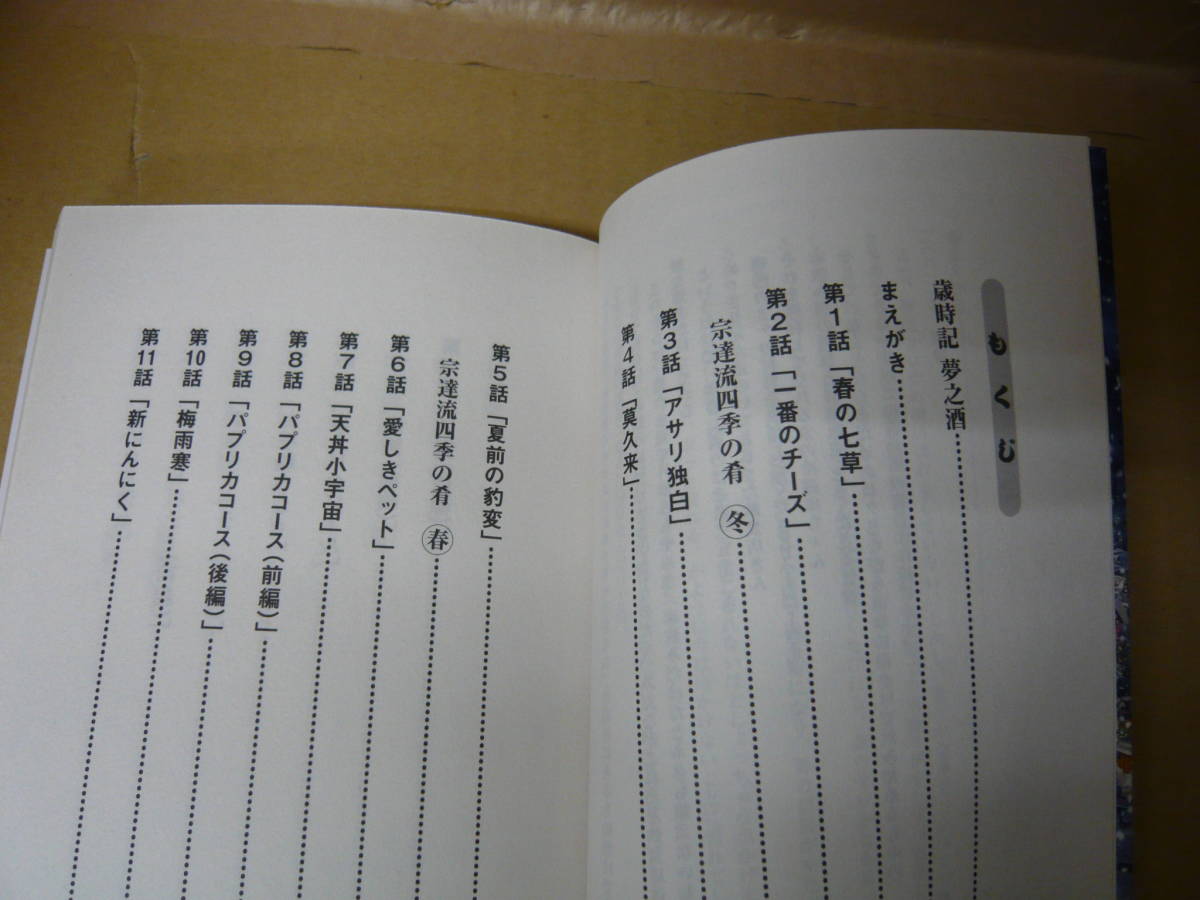 もくじ
歳時記 夢之酒
まえがき
第1話「春の七草」
第2話「一番のチーズ」
宗達流四季の肴 冬
第3話「アサリ独白」
第4話「莫久来」
第5話「夏前の豹変」
宗達流四季の肴 春
第6話「愛しきペット」
第7話「天丼小宇宙」
第8話「パプリカコース(前編)」
第9話「パプリカコース(後編)」
第10話「梅雨寒」
第11話「新にんにく」